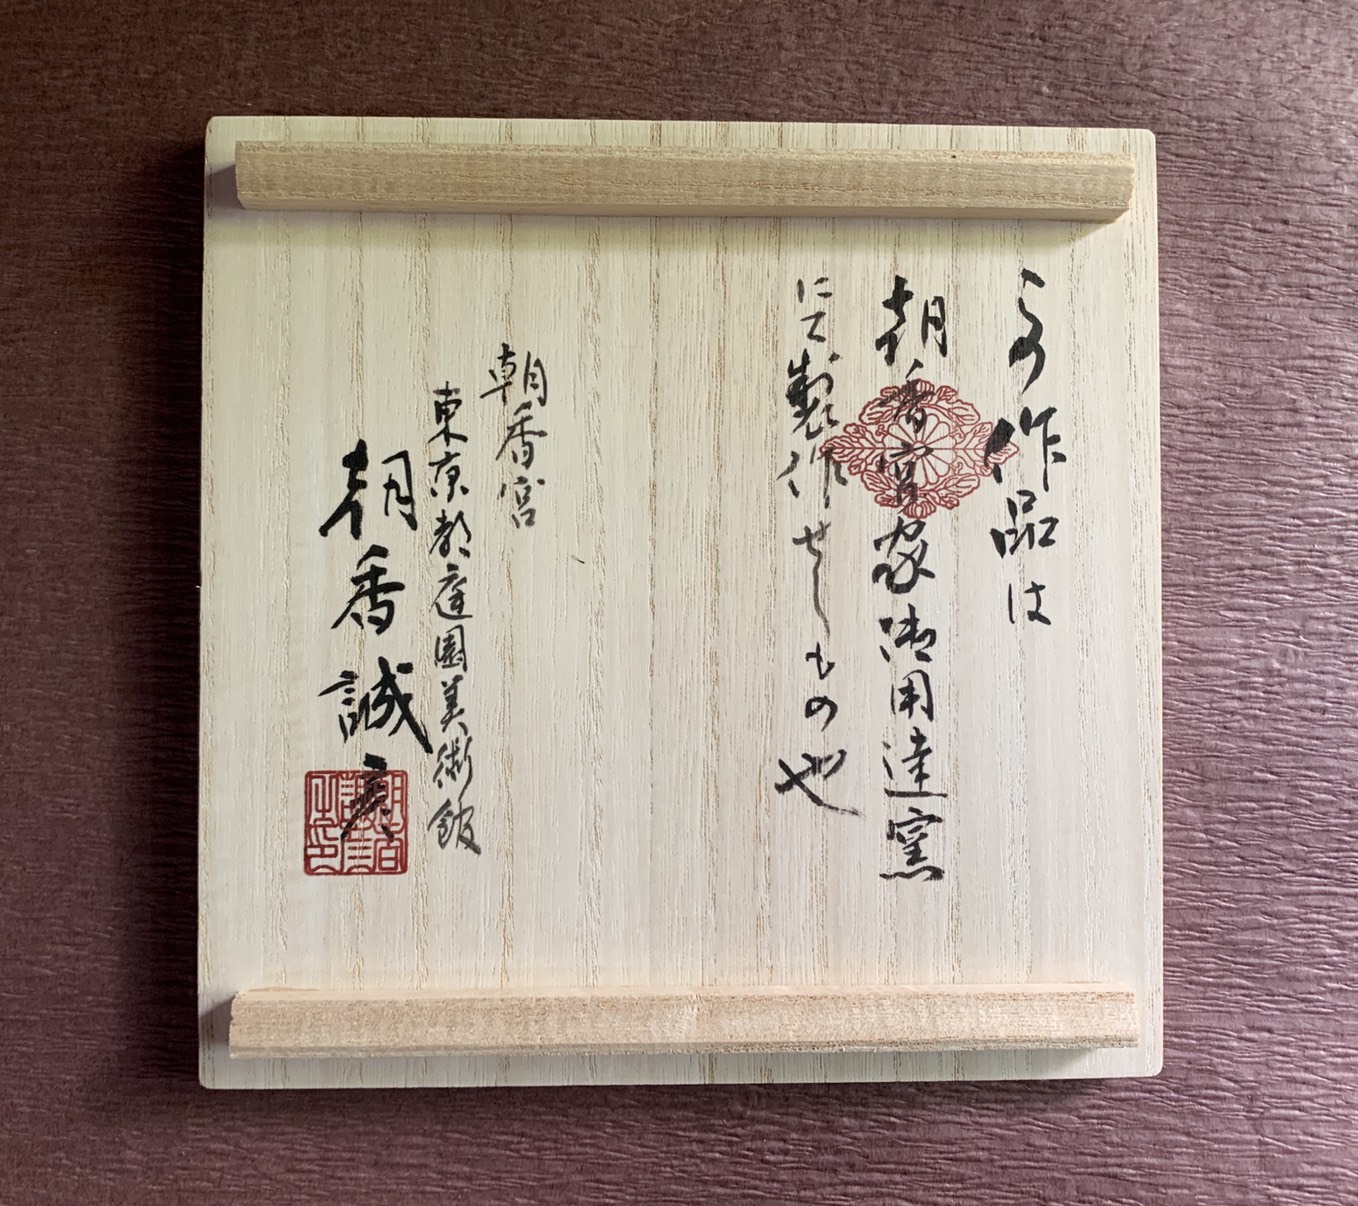 この作品は
朝香宮家御用達窯
にて製作せしもの也
朝香宮
東京都庭園美術館
朝香誠彦
朝香誠彦之印